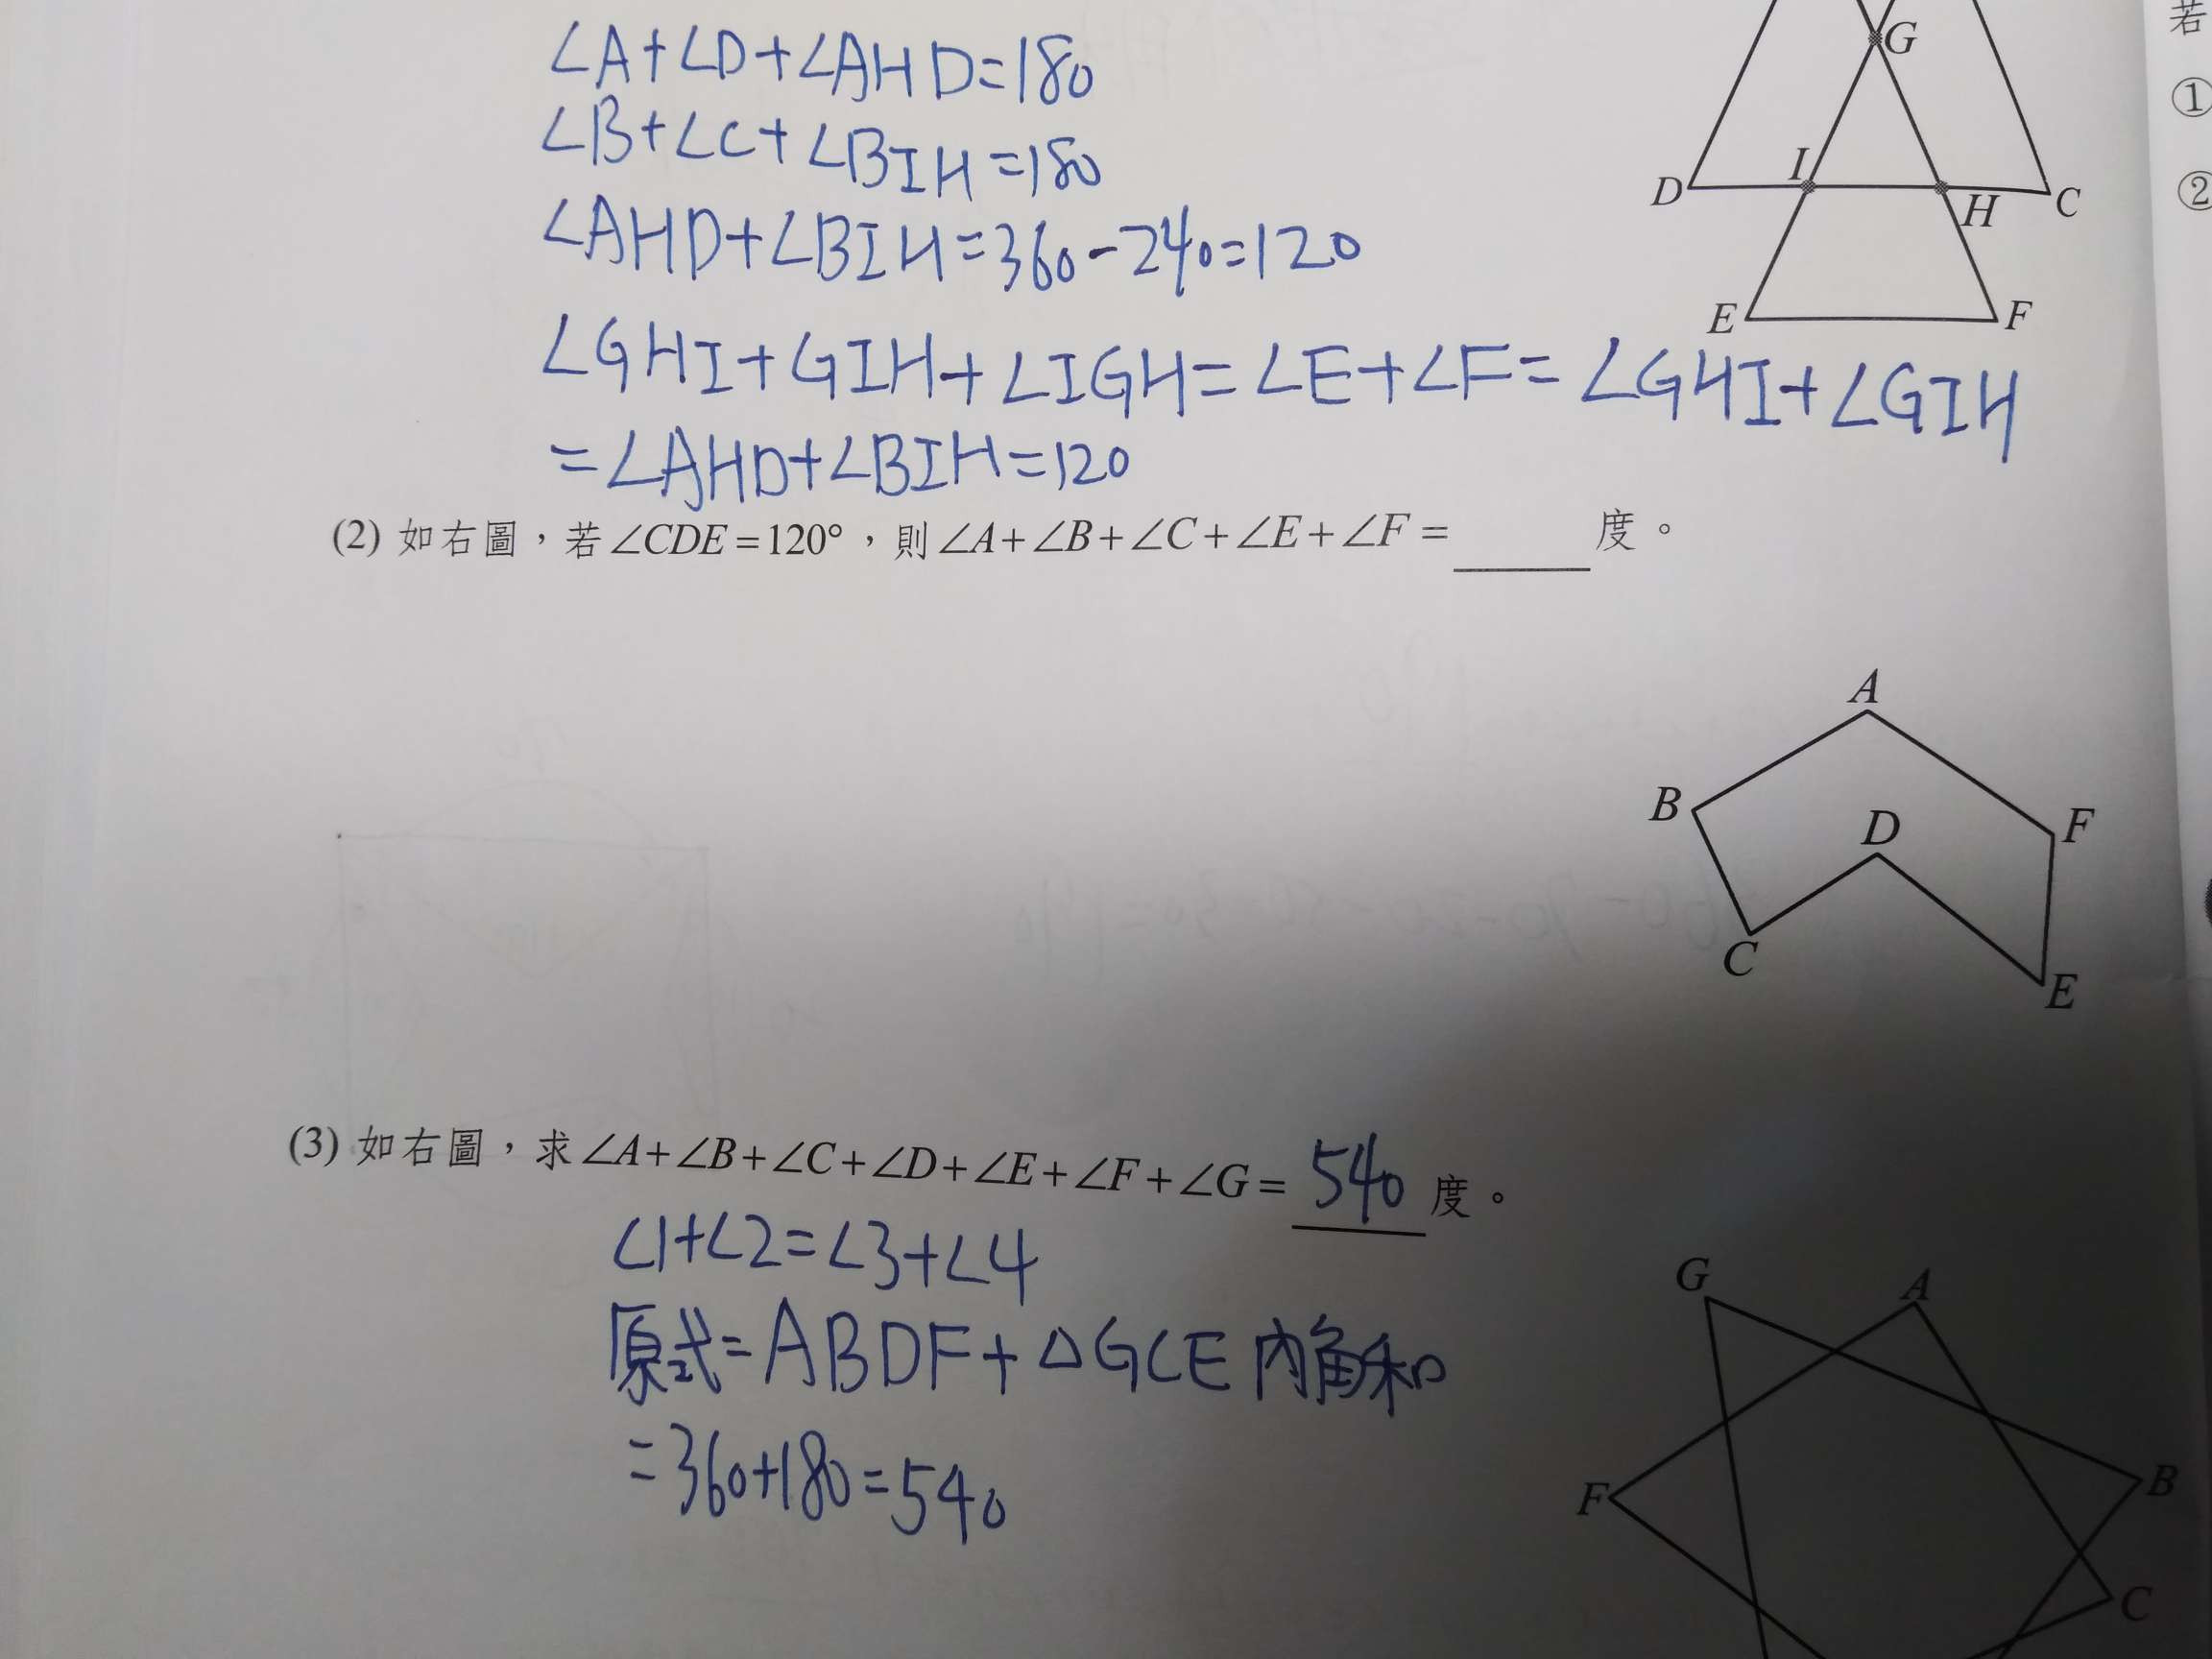 ∠A+∠D+∠AHD=180
∠B+∠C+∠BIH=180
∠AHD+∠BIH=360-240=120
∠GHI+GIH+∠IGH=∠E+∠F=∠GHI+∠GIH
=∠AHD+∠BIH=120
G
D
I
H
C
E
F
若
①
②
(2) 如右圖，若∠CDE=120°，則∠A+∠B+∠C+∠E+∠F=_____度。
A
B
D
F
C
E
(3) 如右圖，求∠A+∠B+∠C+∠D+∠E+∠F+∠G=540度。
∠1+∠2=∠3+∠4
原式=ABDF+△GCE內角和
=360+180=540
G
A
F
B
C